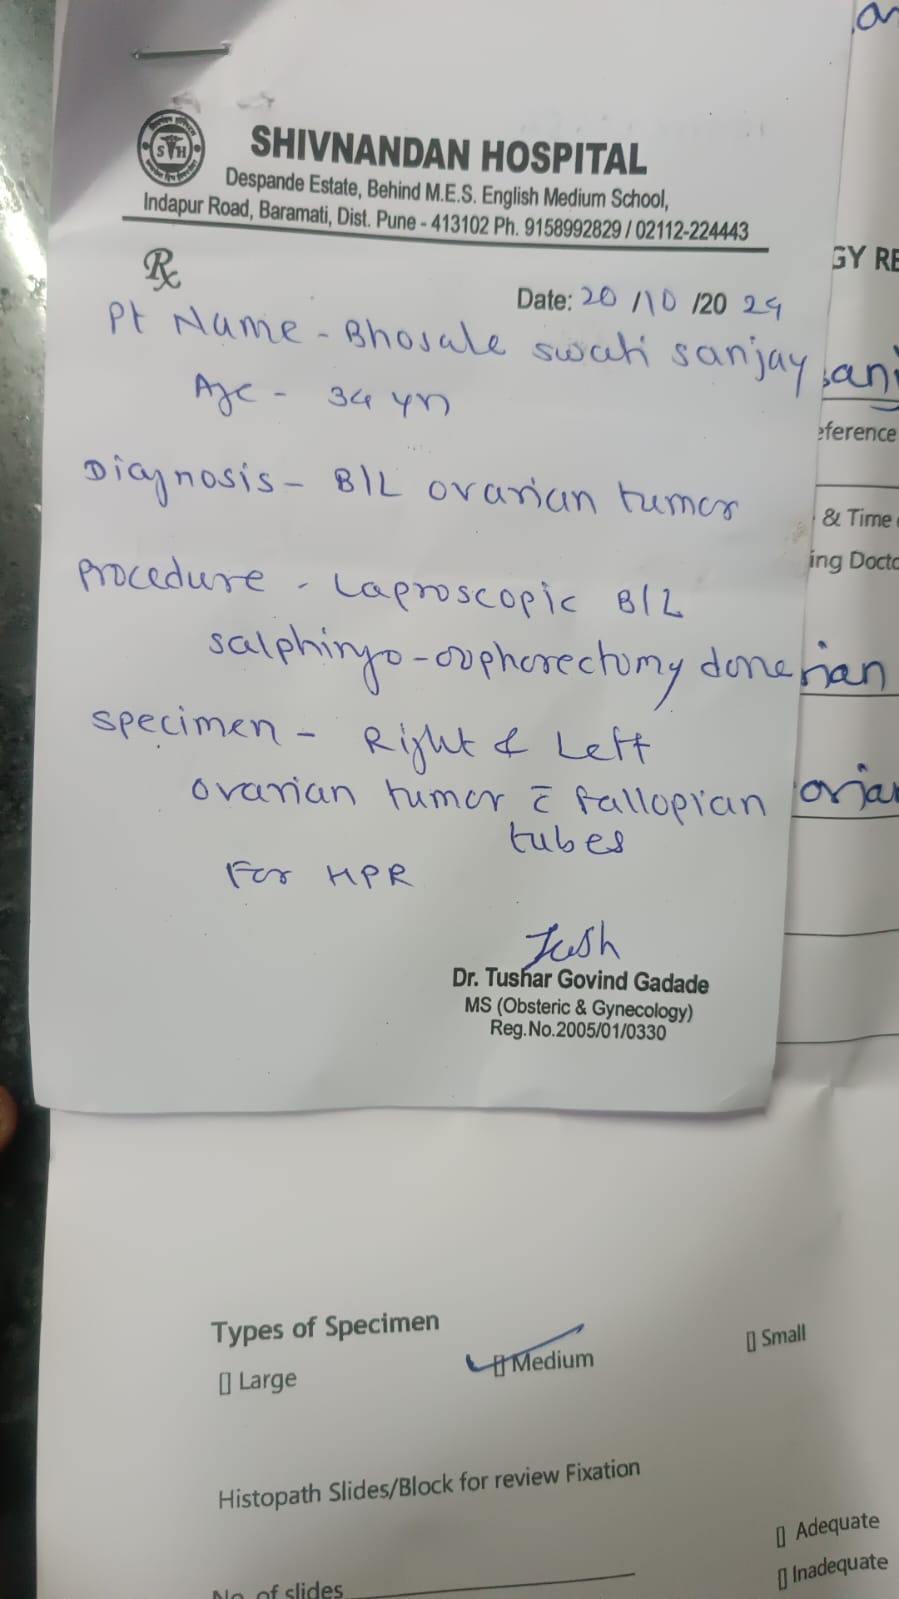 SHIVNANDAN HOSPITAL
Despande Estate, Behind M.E.S. English Medium School,
Indapur Road, Baramati, Dist. Pune - 413102 Ph. 9158992829 / 02112-224443
Rx
Date: 20 /10 /20 24
Pt Name - Bhosale swati sanjay
Age - 34 yrs
Diagnosis - B/L ovarian tumor
Procedure - Laproscopic B/L
salphingo-oophorectomy done
specimen - Right & Left
ovarian tumor c̄ fallopian
tubes
For HPR
Dr. Tushar Govind Gadade
MS (Obsteric & Gynecology)
Reg.No.2005/01/0330
GY RE
sanj
eference
& Time
ing Docto
rian
Types of Specimen
Large
Medium
Small
Histopath Slides/Block for review Fixation
Adequate
Inadequate
No. of slides